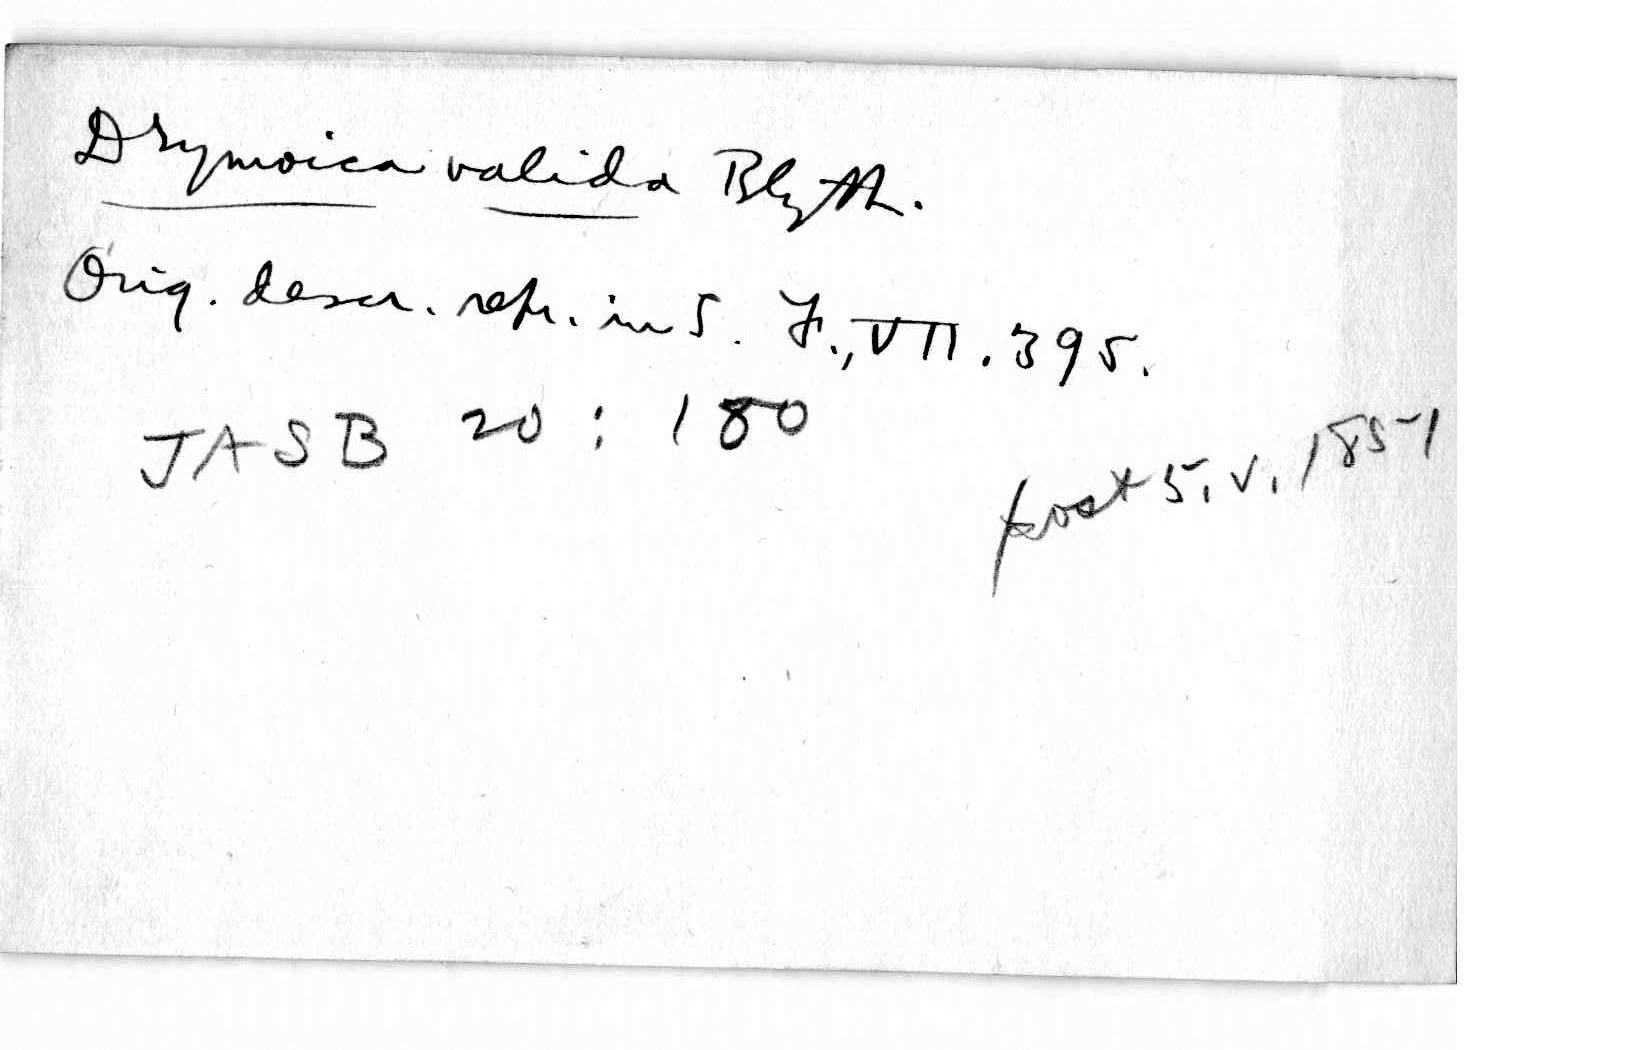 Drymoica valida Blyth.
Orig. descr. repr. in S. F., VII. 395.
JASB 20 : 180
post 5. V. 1851